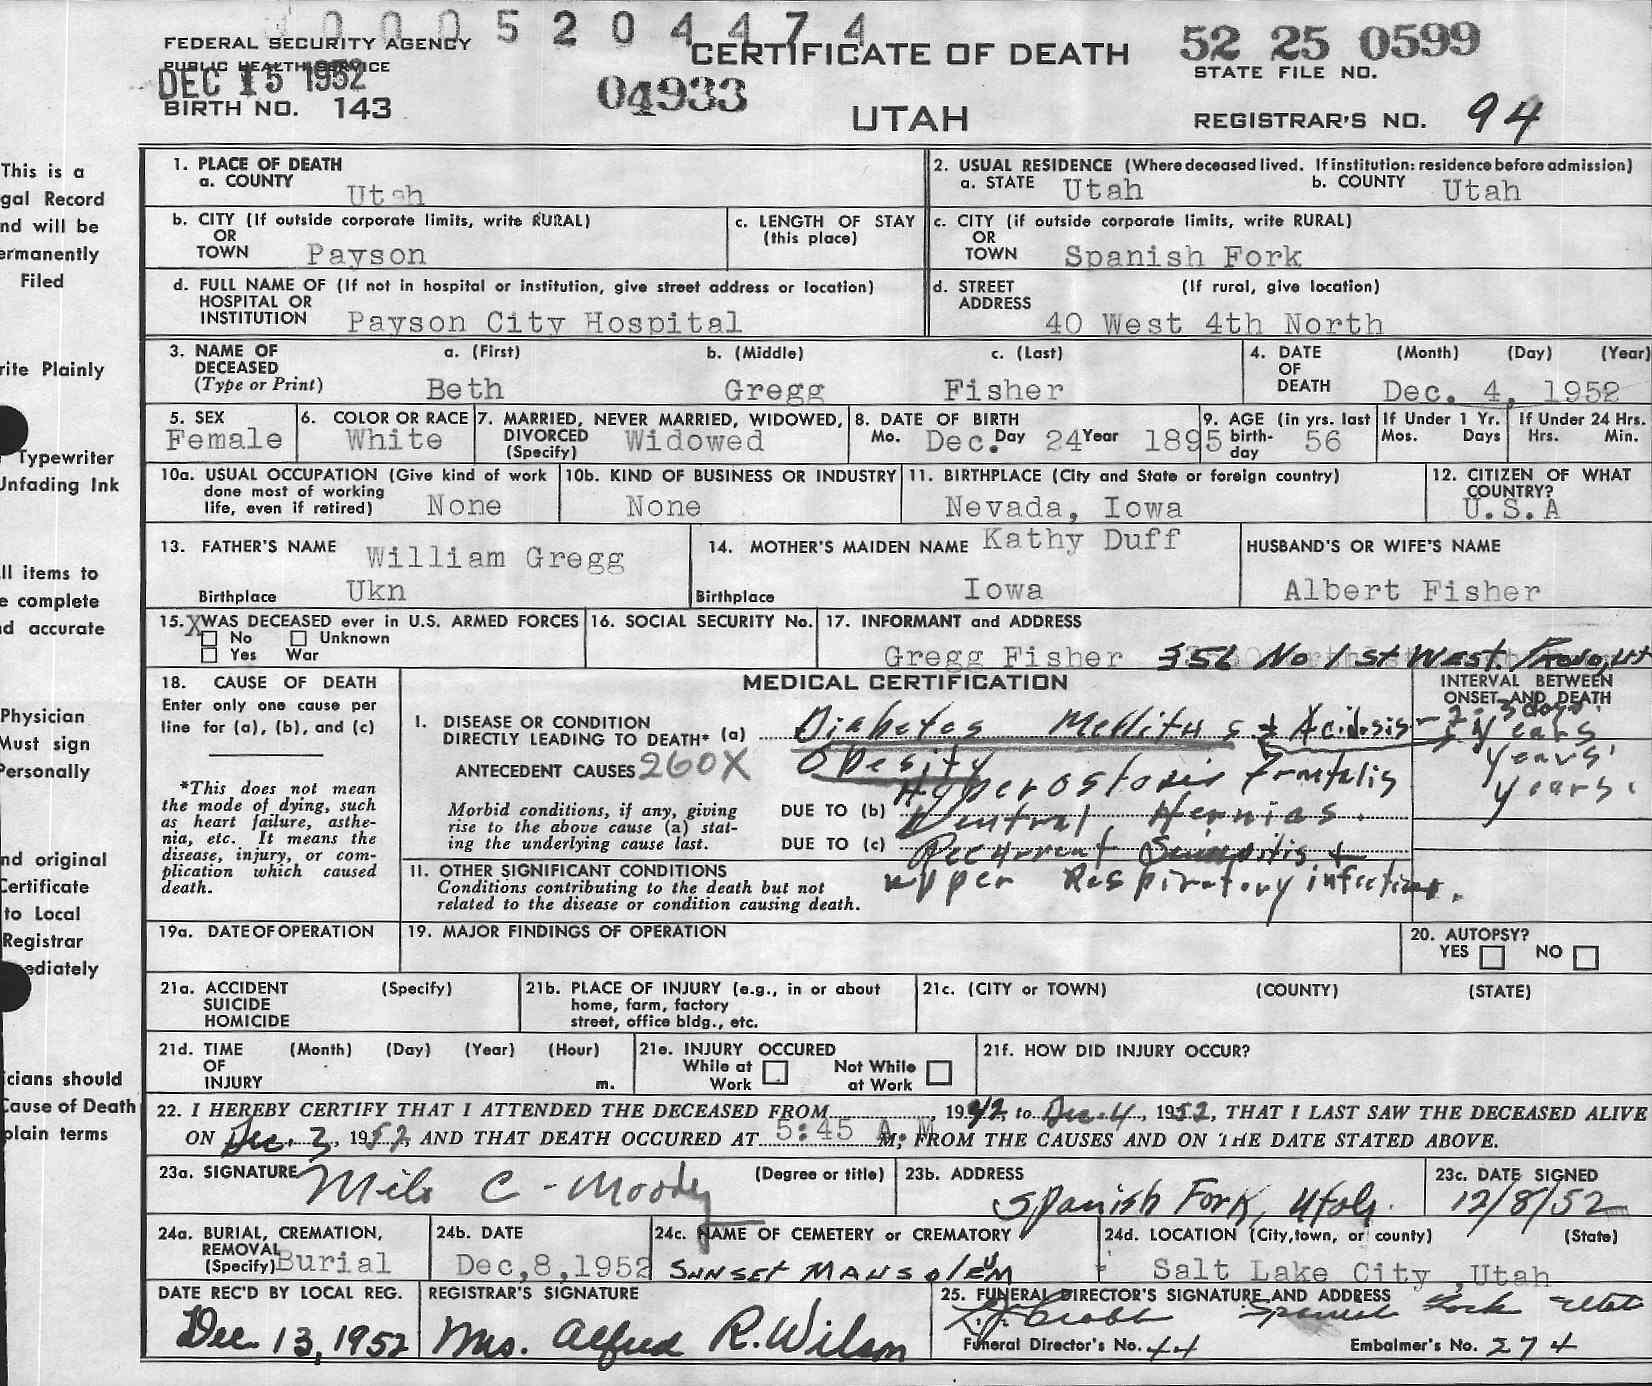 0005204474
FEDERAL SECURITY AGENCY
PUBLIC HEALTH SERVICE
DEC 15 1952
BIRTH NO. 143
04933
CERTIFICATE OF DEATH
UTAH
52 25 0599
STATE FILE NO.
REGISTRAR'S NO. 94
This is a
gal Record
nd will be
ermanently
Filed
rite Plainly
Typewriter
Unfading Ink
ll items to
e complete
nd accurate
Physician
Must sign
Personally
nd original
Certificate
to Local
Registrar
ediately
cians should
Cause of Death
plain terms
1. PLACE OF DEATH
a. COUNTY Utah
2. USUAL RESIDENCE (Where deceased lived. If institution: residence before admission)
a. STATE Utah b. COUNTY Utah
b. CITY (If outside corporate limits, write RURAL)
OR
TOWN Payson
c. LENGTH OF STAY
(this place)
c. CITY (if outside corporate limits, write RURAL)
OR
TOWN Spanish Fork
d. FULL NAME OF (If not in hospital or institution, give street address or location)
HOSPITAL OR
INSTITUTION Payson City Hospital
d. STREET (If rural, give location)
ADDRESS
40 West 4th North
3. NAME OF a. (First) b. (Middle) c. (Last)
DECEASED
(Type or Print) Beth Gregg Fisher
4. DATE (Month) (Day) (Year)
OF
DEATH Dec. 4, 1952
5. SEX
Female
6. COLOR OR RACE
White
7. MARRIED, NEVER MARRIED, WIDOWED,
DIVORCED Widowed
(Specify)
8. DATE OF BIRTH
Mo. Dec. Day 24 Year 1895
9. AGE (in yrs. last
birth- 56
day
If Under 1 Yr.
Mos. Days
If Under 24 Hrs.
Hrs. Min.
10a. USUAL OCCUPATION (Give kind of work
done most of working
life, even if retired) None
10b. KIND OF BUSINESS OR INDUSTRY
None
11. BIRTHPLACE (City and State or foreign country)
Nevada, Iowa
12. CITIZEN OF WHAT
COUNTRY?
U.S.A
13. FATHER'S NAME William Gregg
Birthplace Ukn
14. MOTHER'S MAIDEN NAME Kathy Duff
Birthplace Iowa
HUSBAND'S OR WIFE'S NAME
Albert Fisher
15. X WAS DECEASED ever in U.S. ARMED FORCES
No Unknown
Yes War
16. SOCIAL SECURITY No.
17. INFORMANT and ADDRESS
Gregg Fisher 356 No 1st West. Provo, Ut
18. CAUSE OF DEATH
Enter only one cause per
line for (a), (b), and (c)
*This does not mean
the mode of dying, such
as heart failure, asthe-
nia, etc. It means the
disease, injury, or com-
plication which caused
death.
MEDICAL CERTIFICATION
INTERVAL BETWEEN
ONSET AND DEATH
I. DISEASE OR CONDITION
DIRECTLY LEADING TO DEATH* (a) Diabetes Mellitus Acidosis - 2-3 days.
years
ANTECEDENT CAUSES 260X Obesity years
Hyperostosis Frontalis years.
Morbid conditions, if any, giving
rise to the above cause (a) stat-
ing the underlying cause last.
DUE TO (b) Ventral Hernias.
DUE TO (c) Recurrent Sinusitis +
11. OTHER SIGNIFICANT CONDITIONS upper Respiratory infections.
Conditions contributing to the death but not
related to the disease or condition causing death.
19a. DATE OF OPERATION
19. MAJOR FINDINGS OF OPERATION
20. AUTOPSY?
YES NO
21a. ACCIDENT (Specify)
SUICIDE
HOMICIDE
21b. PLACE OF INJURY (e.g., in or about
home, farm, factory
street, office bldg., etc.
21c. (CITY or TOWN) (COUNTY) (STATE)
21d. TIME (Month) (Day) (Year) (Hour)
OF
INJURY m.
21e. INJURY OCCURED
While at Work
Not While at Work
21f. HOW DID INJURY OCCUR?
22. I HEREBY CERTIFY THAT I ATTENDED THE DECEASED FROM , 1942, to Dec. 4, 1952, THAT I LAST SAW THE DECEASED ALIVE
ON Dec. 3, 1952, AND THAT DEATH OCCURED AT 5:45 A M; FROM THE CAUSES AND ON THE DATE STATED ABOVE.
23a. SIGNATURE Milo C. Moody (Degree or title)
23b. ADDRESS
Spanish Fork, Utah.
23c. DATE SIGNED
12/8/52
24a. BURIAL, CREMATION,
REMOVAL
(Specify) Burial
24b. DATE
Dec, 8, 1952
24c. NAME OF CEMETERY or CREMATORY
Sunset Mausoleum
24d. LOCATION (City, town, or county) (State)
Salt Lake City, Utah
DATE REC'D BY LOCAL REG.
Dec 13, 1952
REGISTRAR'S SIGNATURE
Mrs. Alfred R. Wilson
25. FUNERAL DIRECTOR'S SIGNATURE AND ADDRESS
Spanish Fork Utah
Funeral Director's No. 44 Embalmer's No. 274